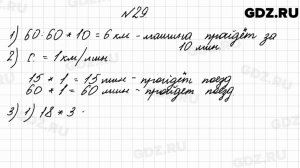 GDZ.RU
№29
1) 60:60*10=6 км - машина пройдёт за
10 мин.
2) с. = 1 км/мин.
15 * 1 = 15 мин - пройдёт поезд
60 * 1 = 60 мин - пройдёт поезд
3) 1) 18 * 3 -
GDZ.RU